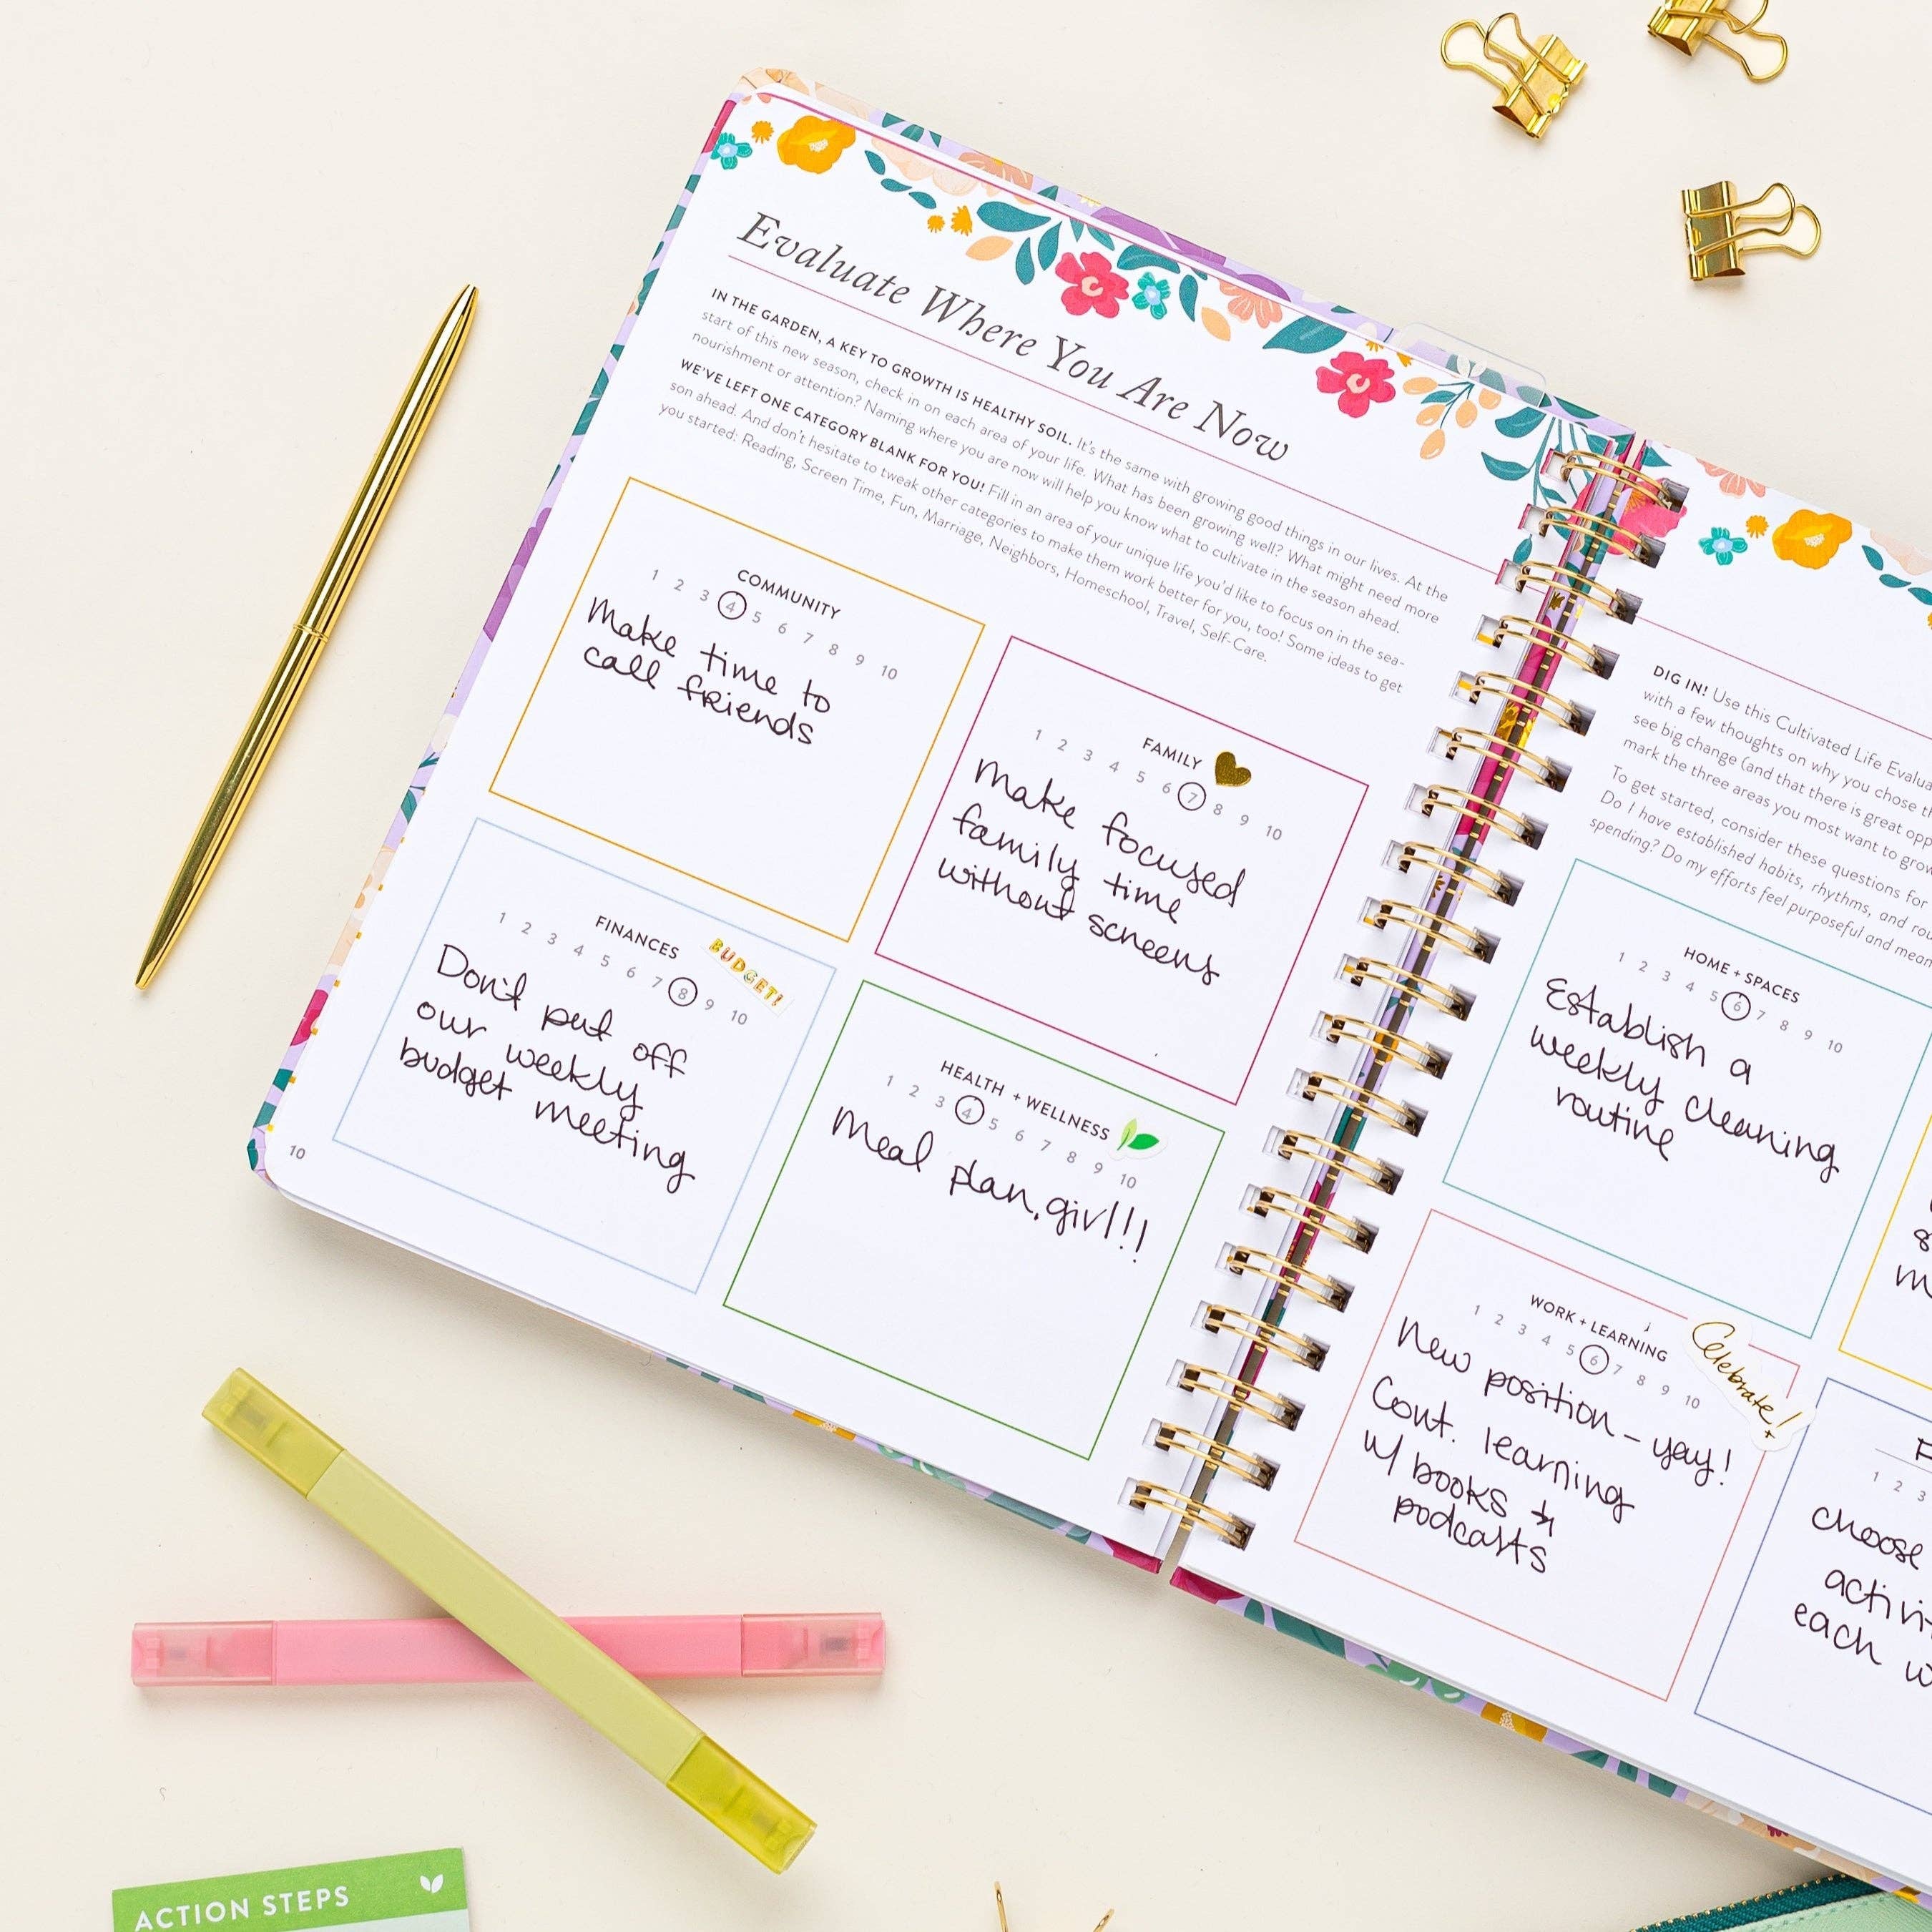 Evaluate Where You Are Now
IN THE GARDEN, A KEY TO GROWTH IS HEALTHY SOIL. It's the same with growing good things in our lives. At the
start of this new season, check in on each area of your life. What has been growing well? What might need more
nourishment or attention? Naming where you are now will help you know what to cultivate in the season ahead.
WE'VE LEFT ONE CATEGORY BLANK FOR YOU! Fill in an area of your unique life you'd like to focus on in the sea-
son ahead. And don't hesitate to tweak other categories to make them work better for you, too! Some ideas to get
you started: Reading, Screen Time, Fun, Marriage, Neighbors, Homeschool, Travel, Self-Care.
COMMUNITY
1 2 3 4 5 6 7 8 9 10
Make time to
call friends
FAMILY
1 2 3 4 5 6 7 8 9 10
Make focused
family time
without screens
FINANCES
BUDGET!
1 2 3 4 5 6 7 8 9 10
Don't put off
our weekly
budget meeting
HEALTH + WELLNESS
1 2 3 4 5 6 7 8 9 10
Meal plan, girl!!!
10
DIG IN! Use this Cultivated Life Evalua
with a few thoughts on why you chose
see big change (and that there is great opp
mark the three areas you most want to grow
To get started, consider these questions for
Do I have established habits, rhythms, and rou
spending? Do my efforts feel purposeful and mean
HOME + SPACES
1 2 3 4 5 6 7 8 9 10
Establish a
weekly cleaning
routine
WORK + LEARNING
1 2 3 4 5 6 7 8 9 10
Celebrate!
New position - yay!
Cont. learning
w/ books +
podcasts
1 2 3
choose
activit
each w
ACTION STEPS